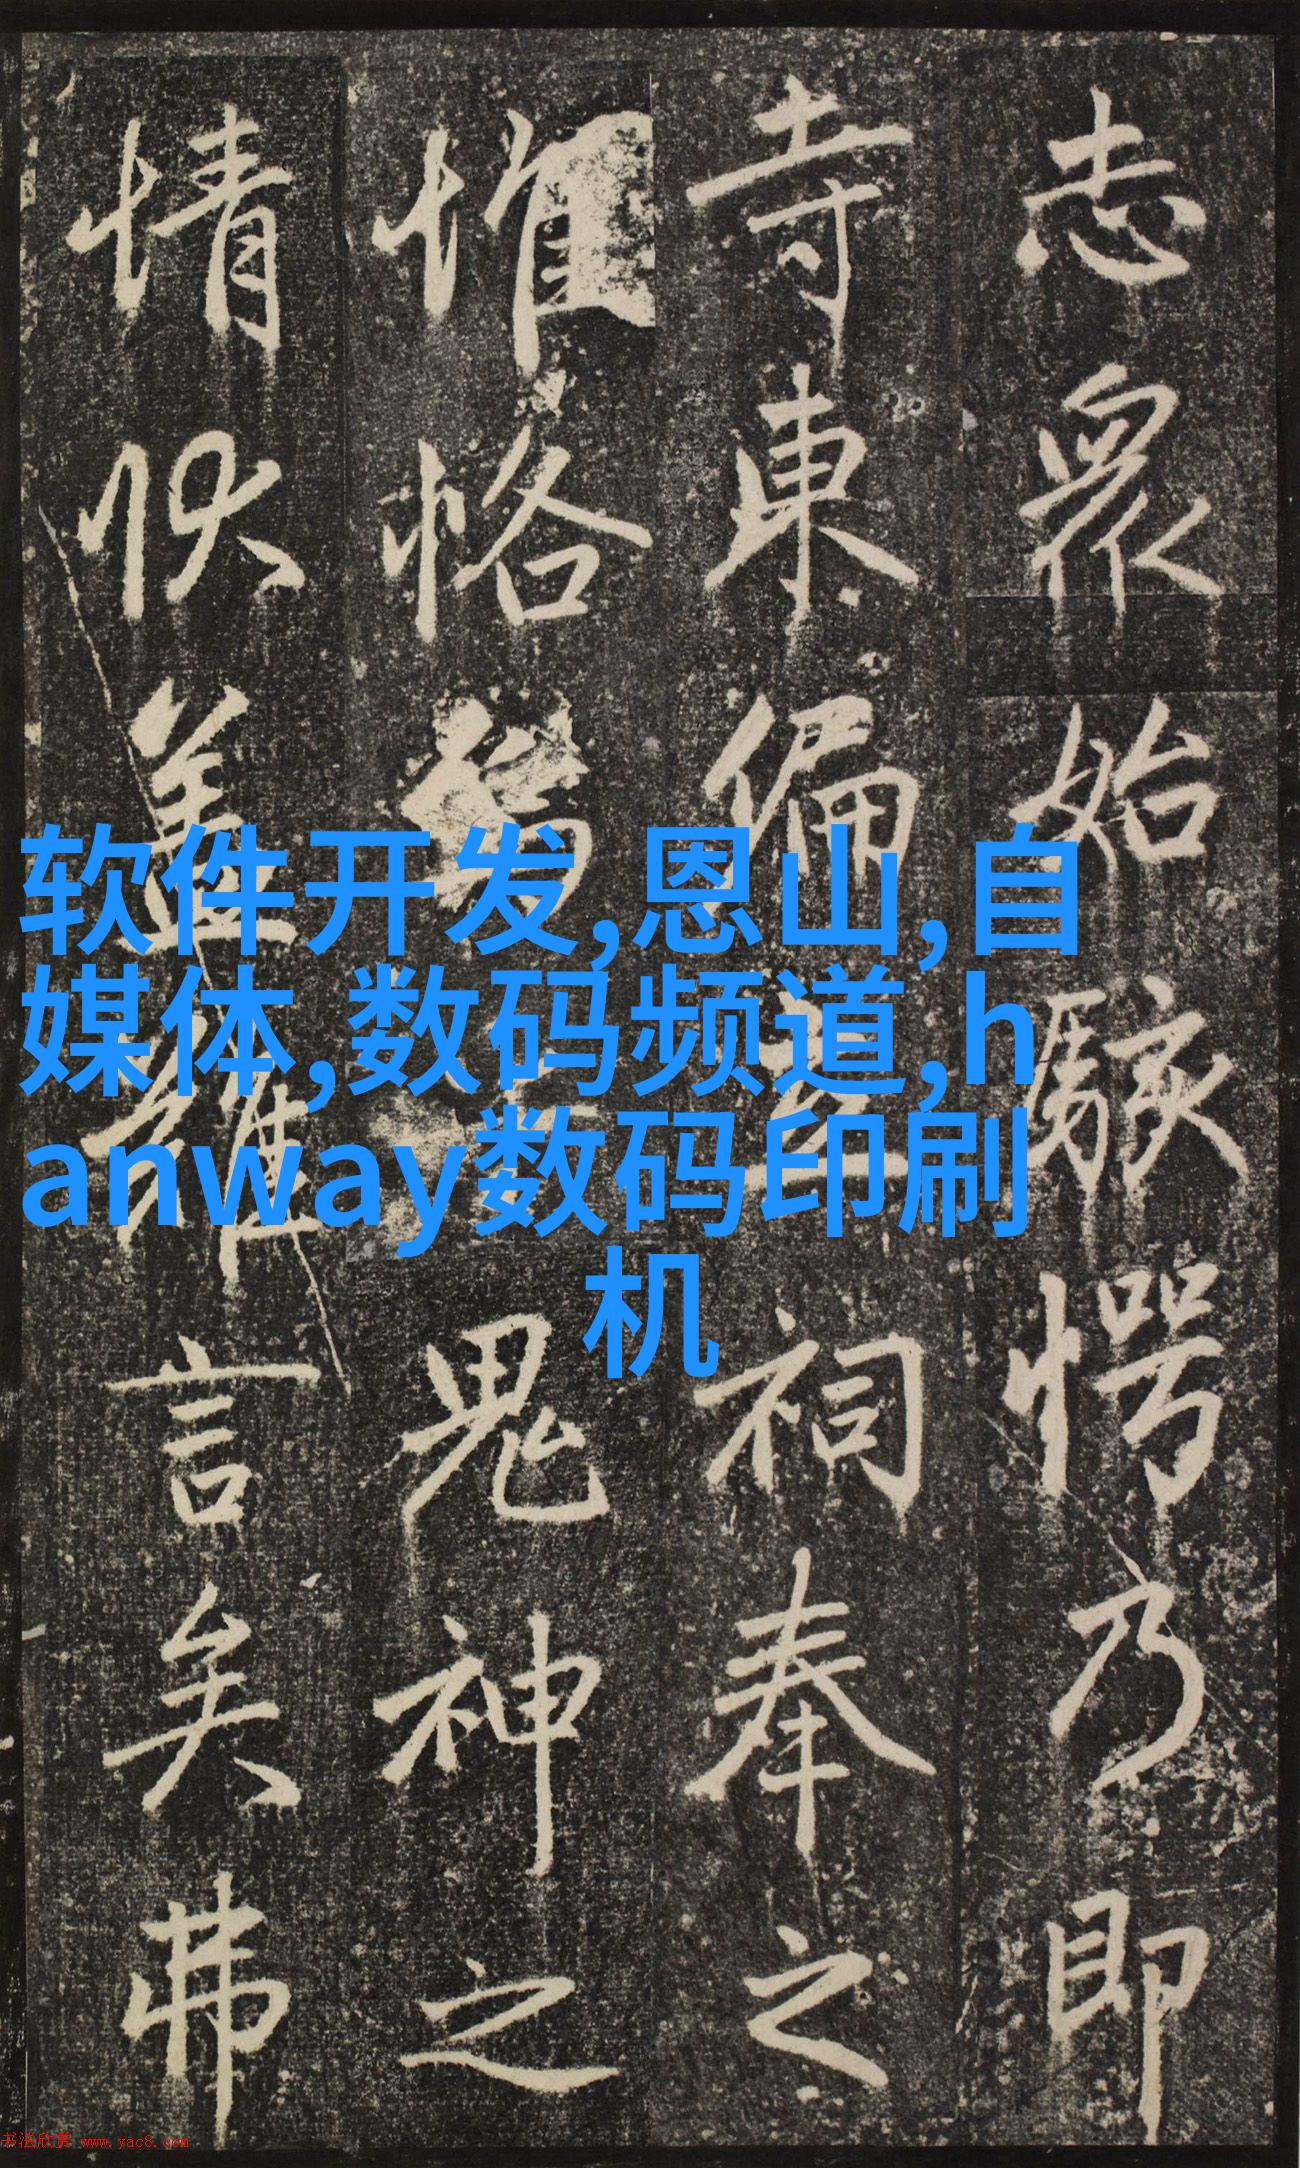 志衆始駭愕乃即
寺東偏立祠奉之
惟恪鬼神之
情狀蓋難言矣弗
软件开发,恩山,自
媒体,数码频道,h
anway数码印刷
机
书法欣赏 www.yac8.com